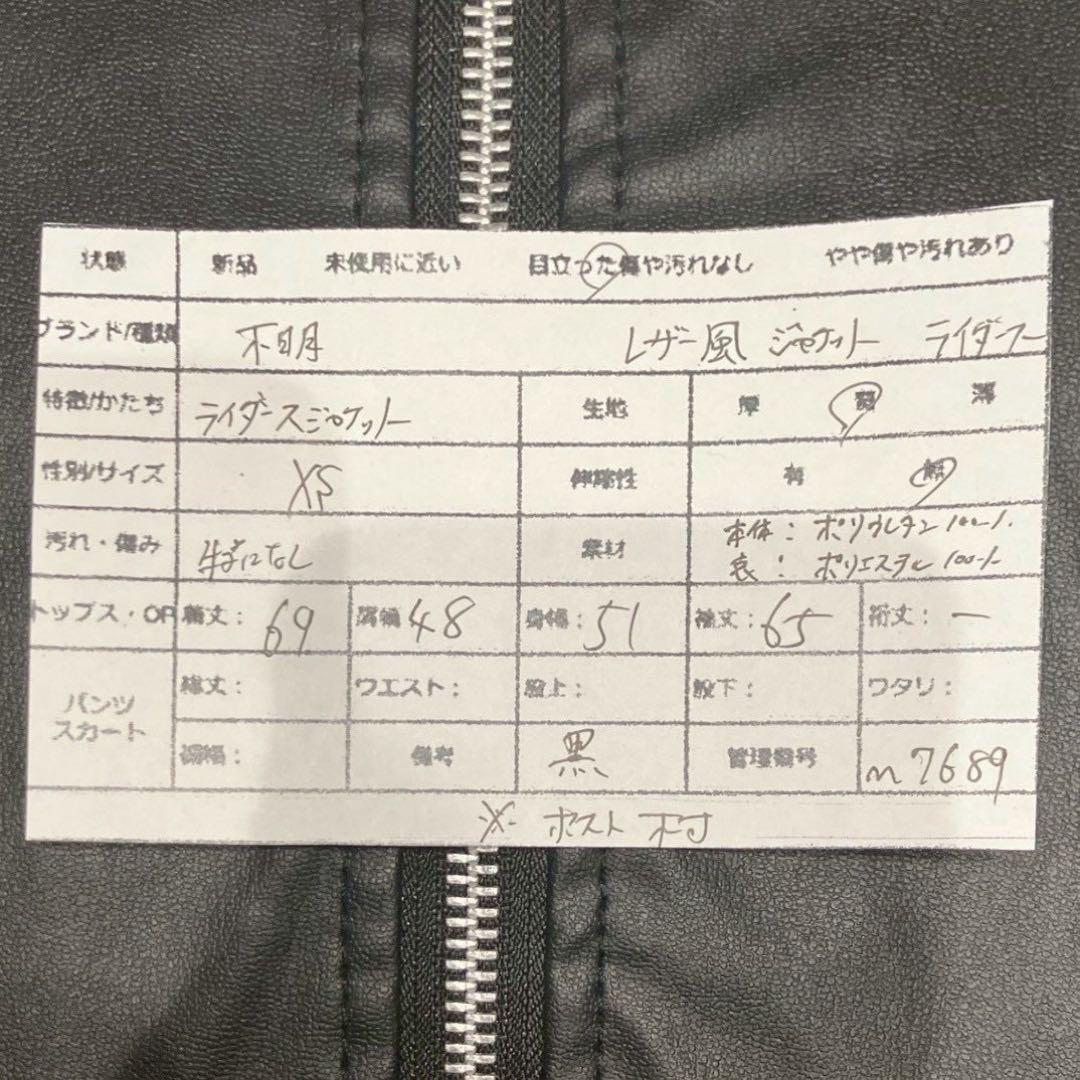 状態 新品 未使用に近い 目立った傷や汚れなし やや傷や汚れあり
ブランド/種類 不明 レザー風 ジャケット ライダース
特徴/かたち ライダースジャケット 生地 厚 普 薄
性別/サイズ XS 伸縮性 有 無
汚れ・傷み 特になし 素材 本体:ポリウレタン100%
表:ポリエステル100%
トップス・OP 着丈:69 肩幅48 身幅:51 袖丈:65 裄丈:ー
パンツ
スカート
総丈: ウエスト: 股上: 股下: ワタリ:
裾幅: 備考 黒 管理番号 m7689
※ ポスト 村